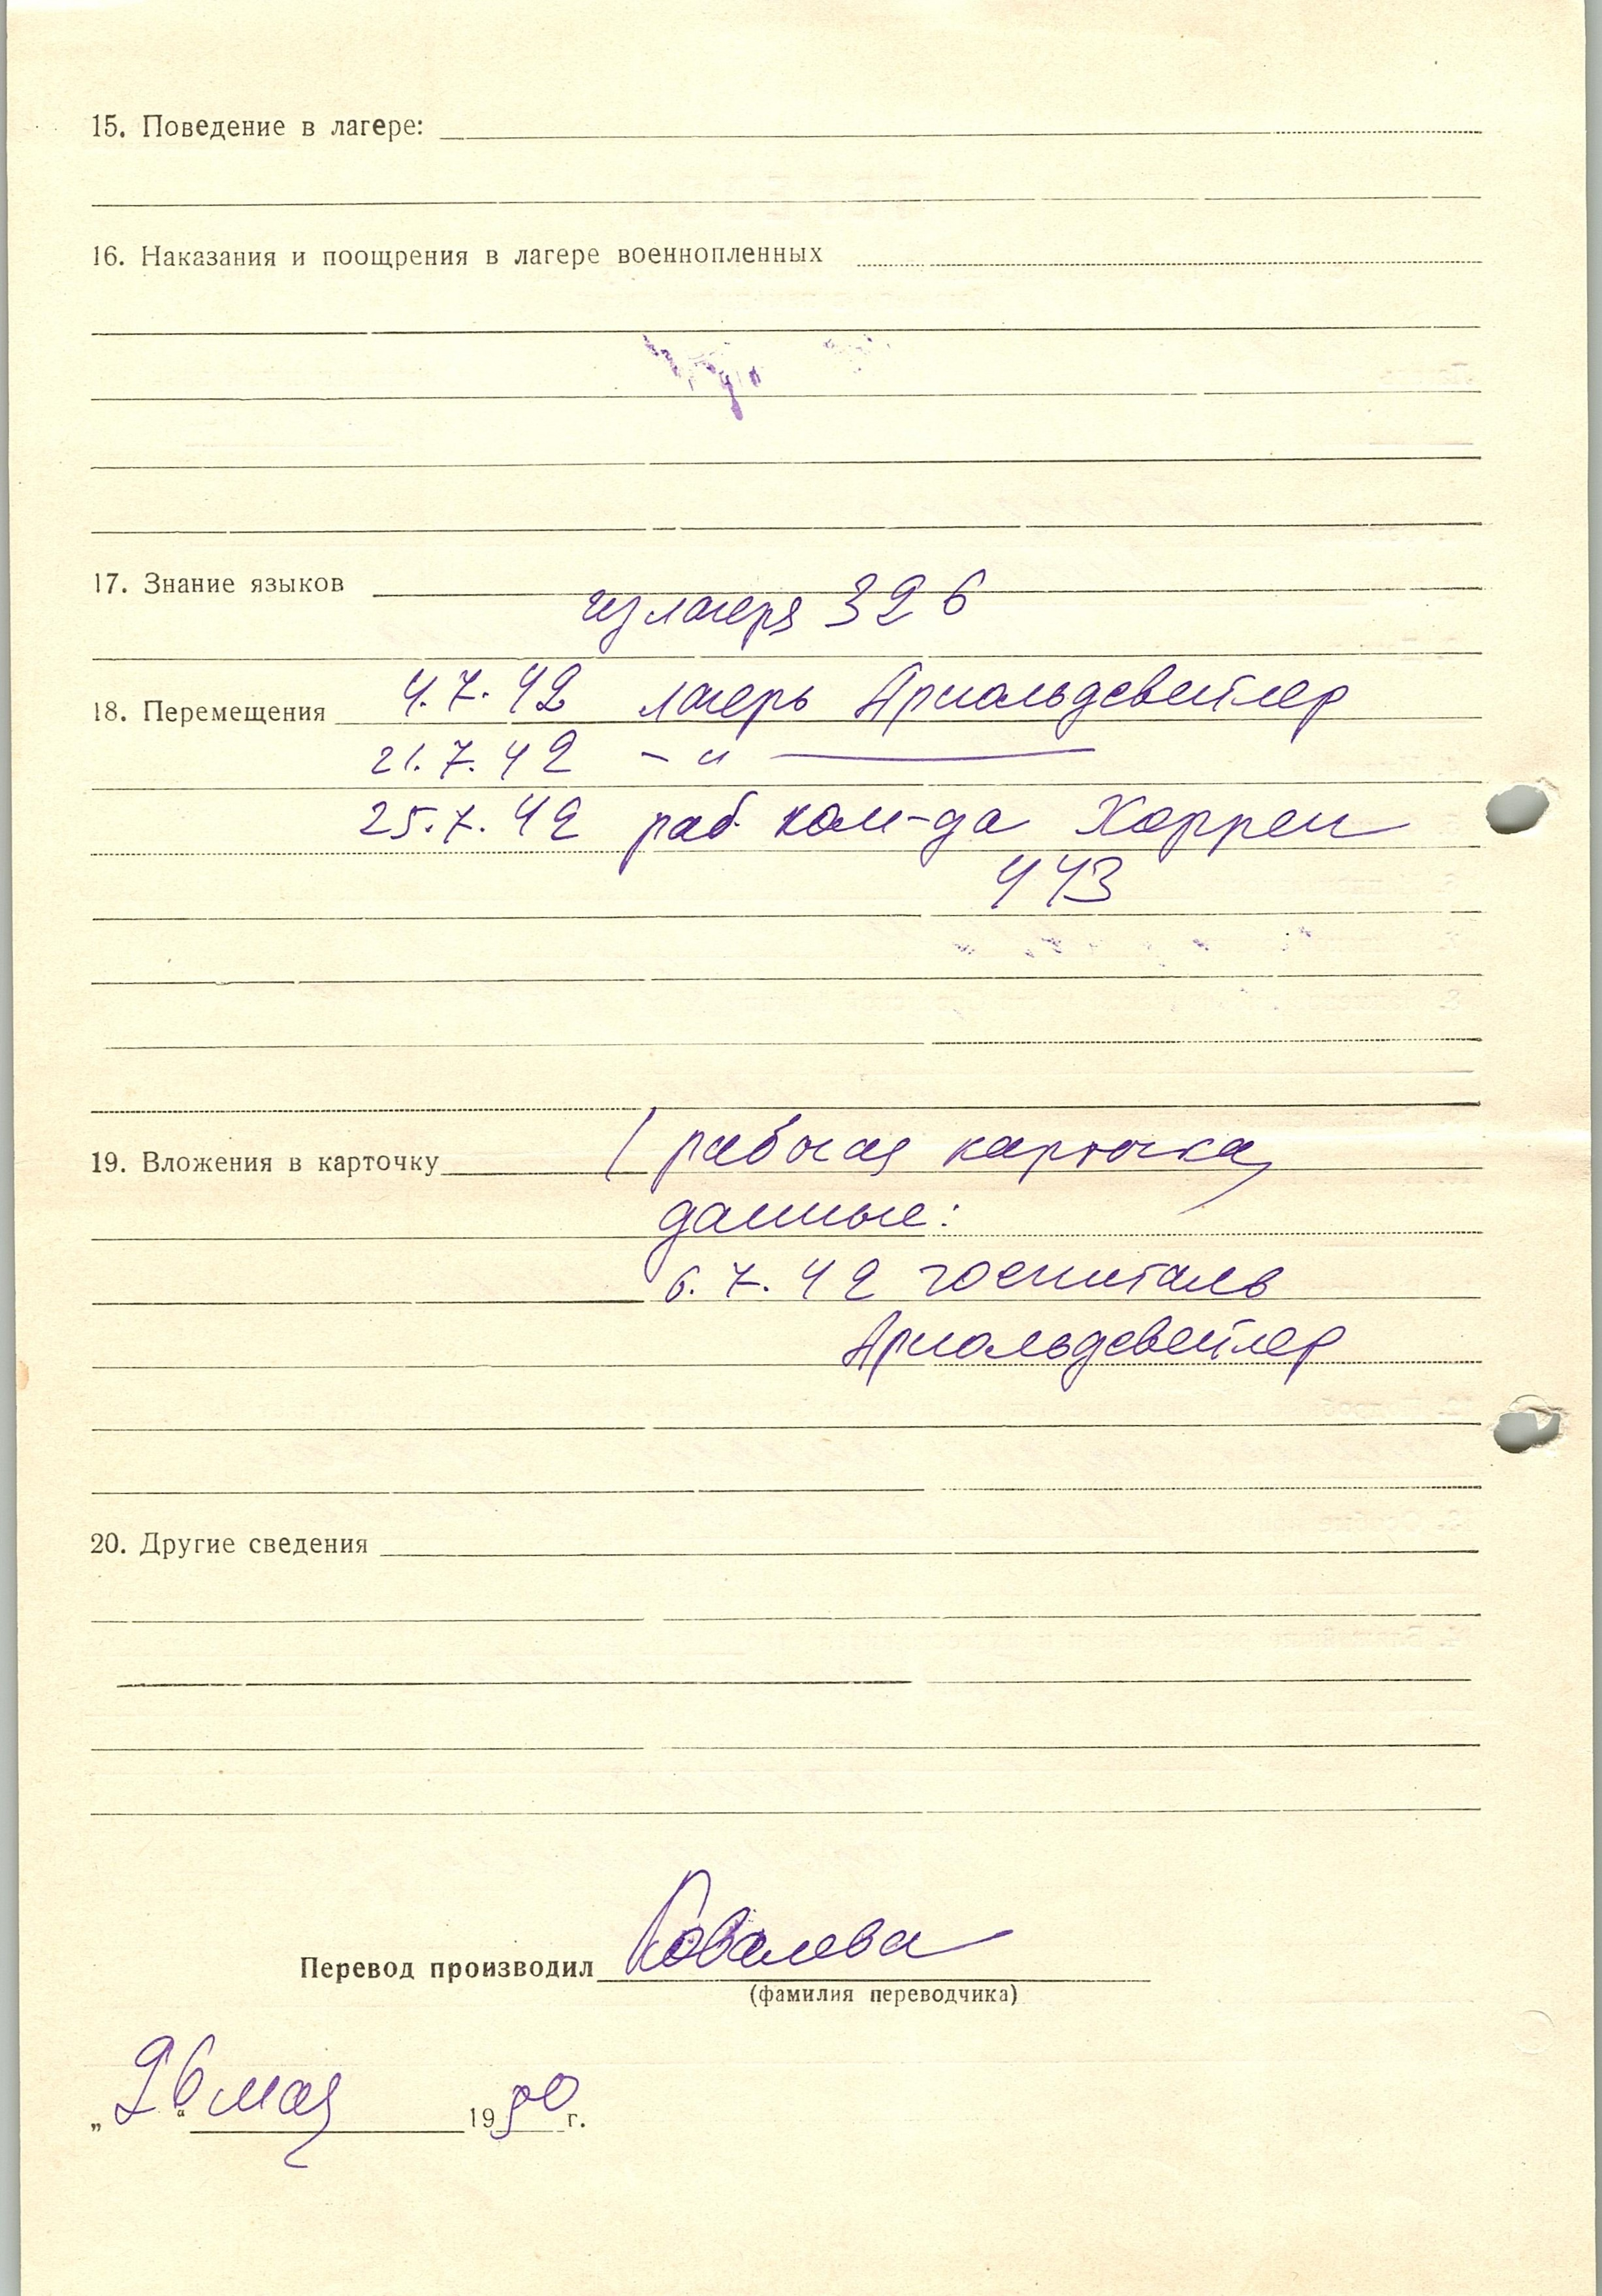 15. Поведение в лагере:
16. Наказания и поощрения в лагере военнопленных
17. Знание языков
из лагеря 326
18. Перемещения 4.7.42 лагерь Арнольдсвейлер
21.7.42 – " —
25.7.42 раб. ком-да Хоррем
443
19. Вложения в карточку ( рабочая карточка,
данные:
6.7.42 госпиталь
Арнольдсвейлер
20. Другие сведения
Перевод производил Ковалева
(фамилия переводчика)
„26“ мая 1950 г.